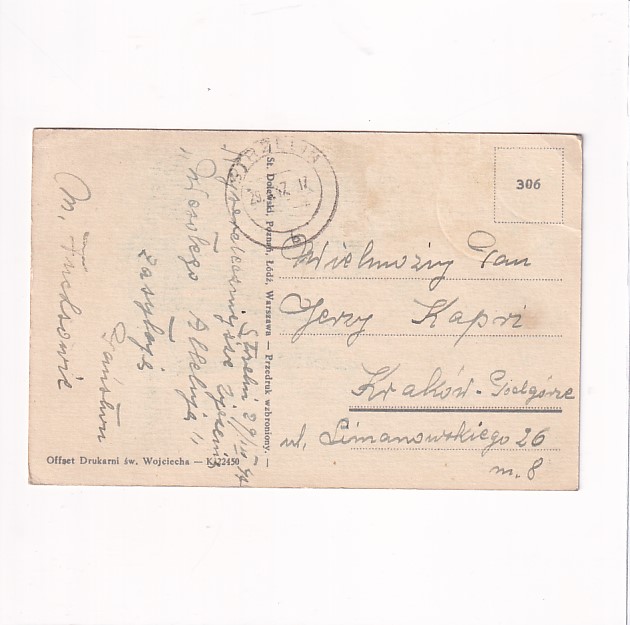 306
STRZELIN
29. 47. 17
Wielmożny Pan
Jerzy Kapri
Kraków - Podgórze
ul. Limanowskiego 26
m. 8
St. Dolewski, Poznań, Łódź, Warszawa — Przedruk wzbroniony. —
Offset Drukarni św. Wojciecha — K-22450
29/III 47
Najserdeczniejsze życzenia
"Wesołego Alleluja"
zasyłają
Państwu
M.